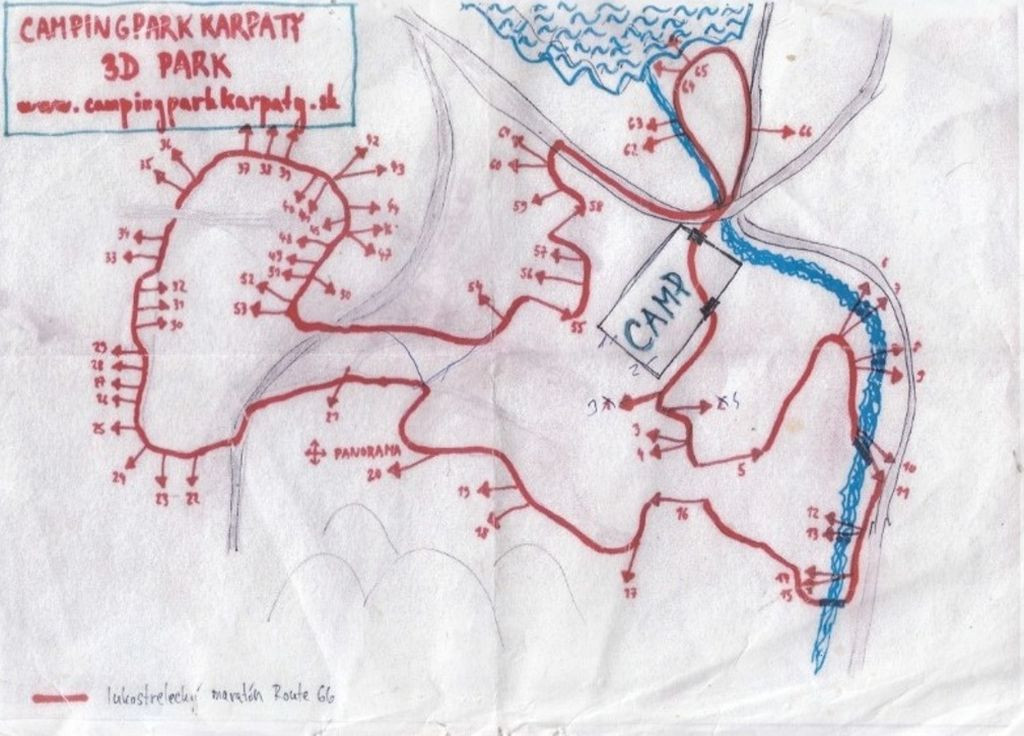 CAMPINGPARK KARPATY
3D PARK
www.campingparkkarpaty.sk
36
35
37
38
39
42
43
34
33
32
31
30
29
28
27
26
25
24
23
22
21
44
45
47
48
49
50
52
53
54
61
60
59
58
57
56
55
65
64
63
62
66
CAMP
1
2
3
4
5
6
7
8
9
10
11
12
13
14
15
16
17
18
19
20
PANORAMA
lukostrelecký maratón Route 66